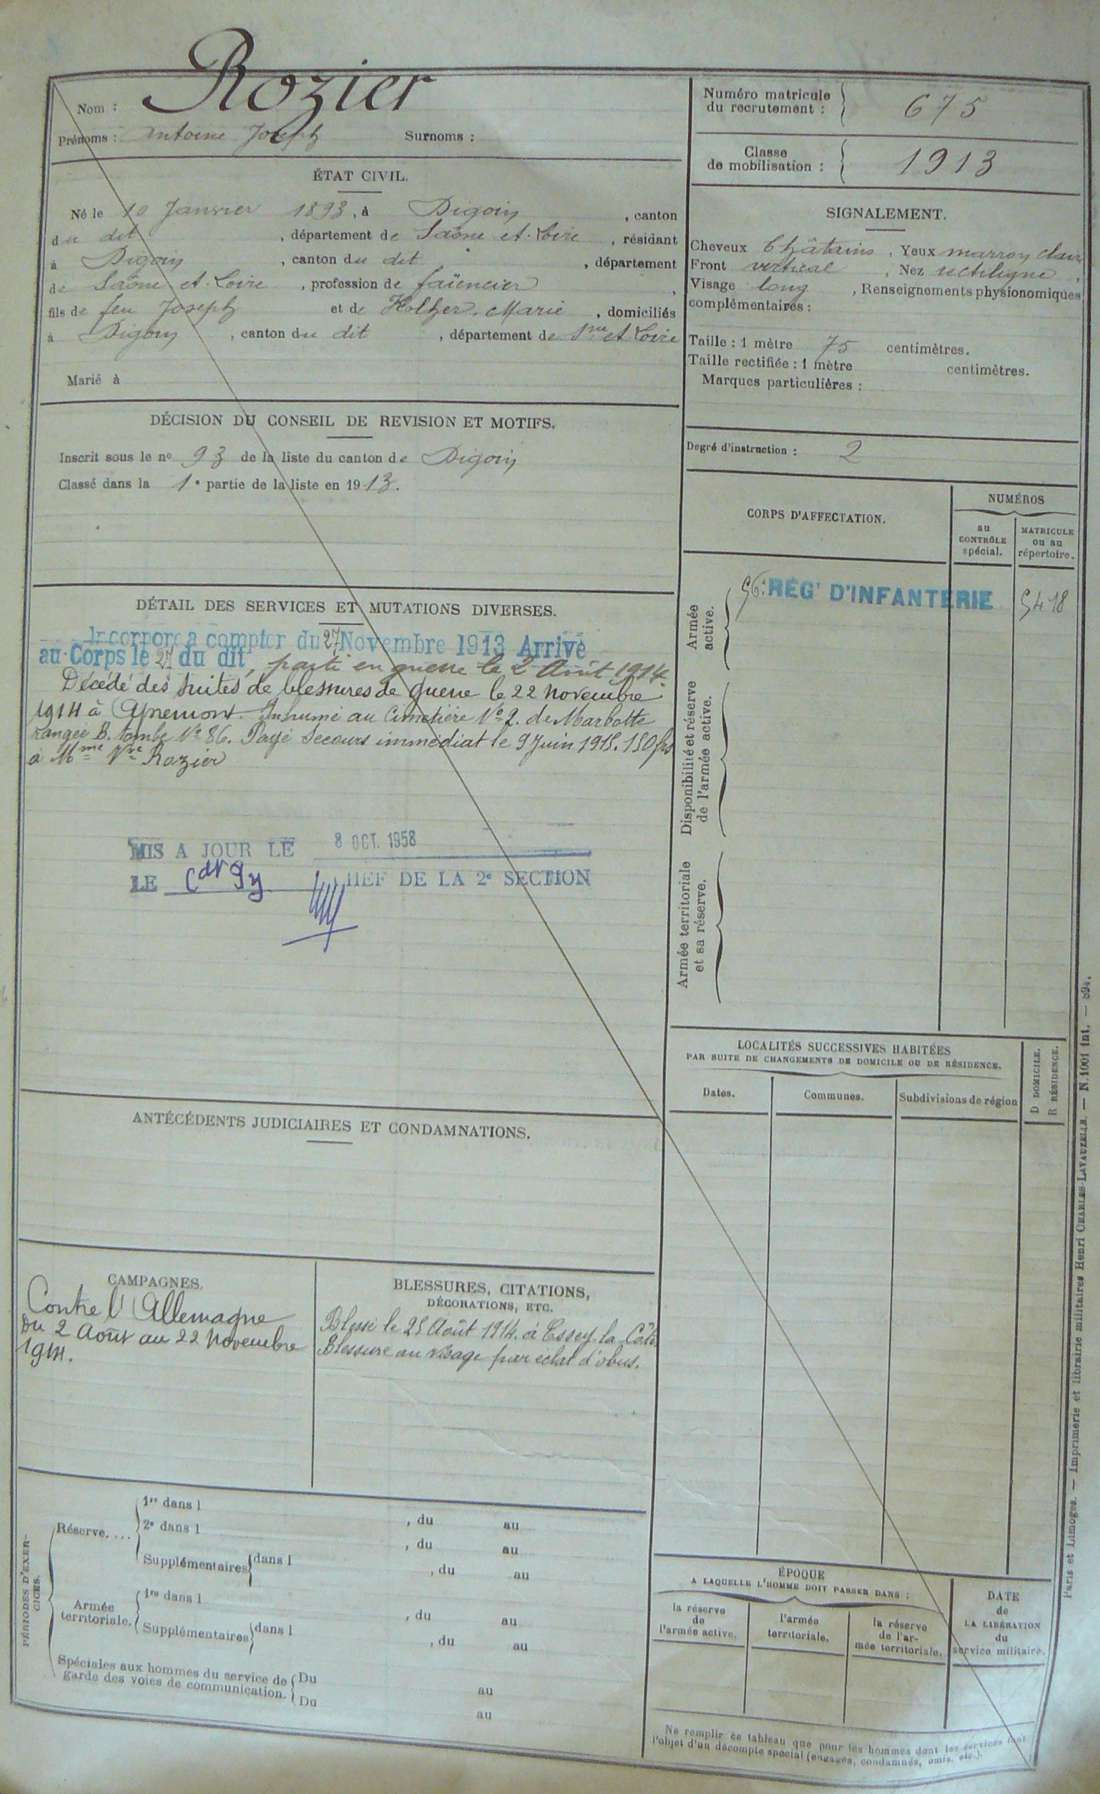 Nom : Rozier
Prénoms : Antoine Joseph Surnoms :
ÉTAT CIVIL.
Né le 10 Janvier 1893, à Digoin, canton
du dit, département de Saône et Loire, résidant
à Digoin, canton du dit, département
de Saône et Loire, profession de faïencier,
fils de feu Joseph et de Holtzer, Marie, domiciliés
à Digoin, canton du dit, département de S.ne et Loire
Marié à
DÉCISION DU CONSEIL DE REVISION ET MOTIFS.
Inscrit sous le no 93 de la liste du canton de Digoin
Classé dans la 1e partie de la liste en 1913.
DÉTAIL DES SERVICES ET MUTATIONS DIVERSES.
Incorporé à compter du 27 Novembre 1913 Arrivé
au Corps le 27 du dit, parti en guerre le 2 Août 1914.
Décédé des suites de blessures de guerre le 22 novembre
1914 à Apremont. Inhumé au Cimetière No 2. de Marbotte
rangée B. tombe No 86. Payé Secours immédiat le 9 Juin 1915. 150 frs
à Mme Vve Rozier
MIS A JOUR LE 8 OCT. 1958
LE CHEF DE LA 2e SECTION
ANTÉCÉDENTS JUDICIAIRES ET CONDAMNATIONS.
CAMPAGNES.
Contre l'Allemagne
Du 2 Août au 22 Novembre
1914.
BLESSURES, CITATIONS,
DÉCORATIONS, ETC.
Blessé le 25 Août 1914. à Essey la Côte
Blessure au visage par éclat d'obus.
PÉRIODES D'EXER-
CICES.
Réserve....
1re dans l , du au
2e dans l , du au
Supplémentaires dans l , du au
Armée
territoriale.
1re dans l , du au
Supplémentaires dans l , du au
Spéciales aux hommes du service de
garde des voies de communication.
Du au
Du au
Numéro matricule
du recrutement : 675
Classe
de mobilisation : 1913
SIGNALEMENT.
Cheveux Châtains, Yeux marron clair
Front vertical, Nez rectiligne,
Visage long, Renseignements physionomiques
complémentaires :
Taille : 1 mètre 75 centimètres.
Taille rectifiée : 1 mètre centimètres.
Marques particulières :
Degré d'instruction : 2
CORPS D'AFFECTATION.
NUMÉROS
au
CONTRÔLE
spécial.
MATRICULE
ou au
répertoire.
Armée
active.
56e RÉGt D'INFANTERIE
5418
Disponibilité et réserve
de l'armée active.
Armée territoriale
et sa réserve.
LOCALITÉS SUCCESSIVES HABITÉES
PAR SUITE DE CHANGEMENTS DE DOMICILE OU DE RÉSIDENCE.
Dates.
Communes.
Subdivisions de région
D DOMICILE.
R RÉSIDENCE.
ÉPOQUE
A LAQUELLE L'HOMME DOIT PASSER DANS :
la réserve
de
l'armée active.
l'armée
territoriale.
la réserve
de l'ar-
mée territoriale.
DATE
de
LA LIBÉRATION
du
service militaire.
Ne remplir ce tableau que pour les hommes dont les services font
l'objet d'un décompte spécial (engagés, condamnés, omis, etc.).
Paris et Limoges. — Imprimerie et librairie militaires Henri CHARLES-LAVAUZELLE. — N. 1001 int. — 894.